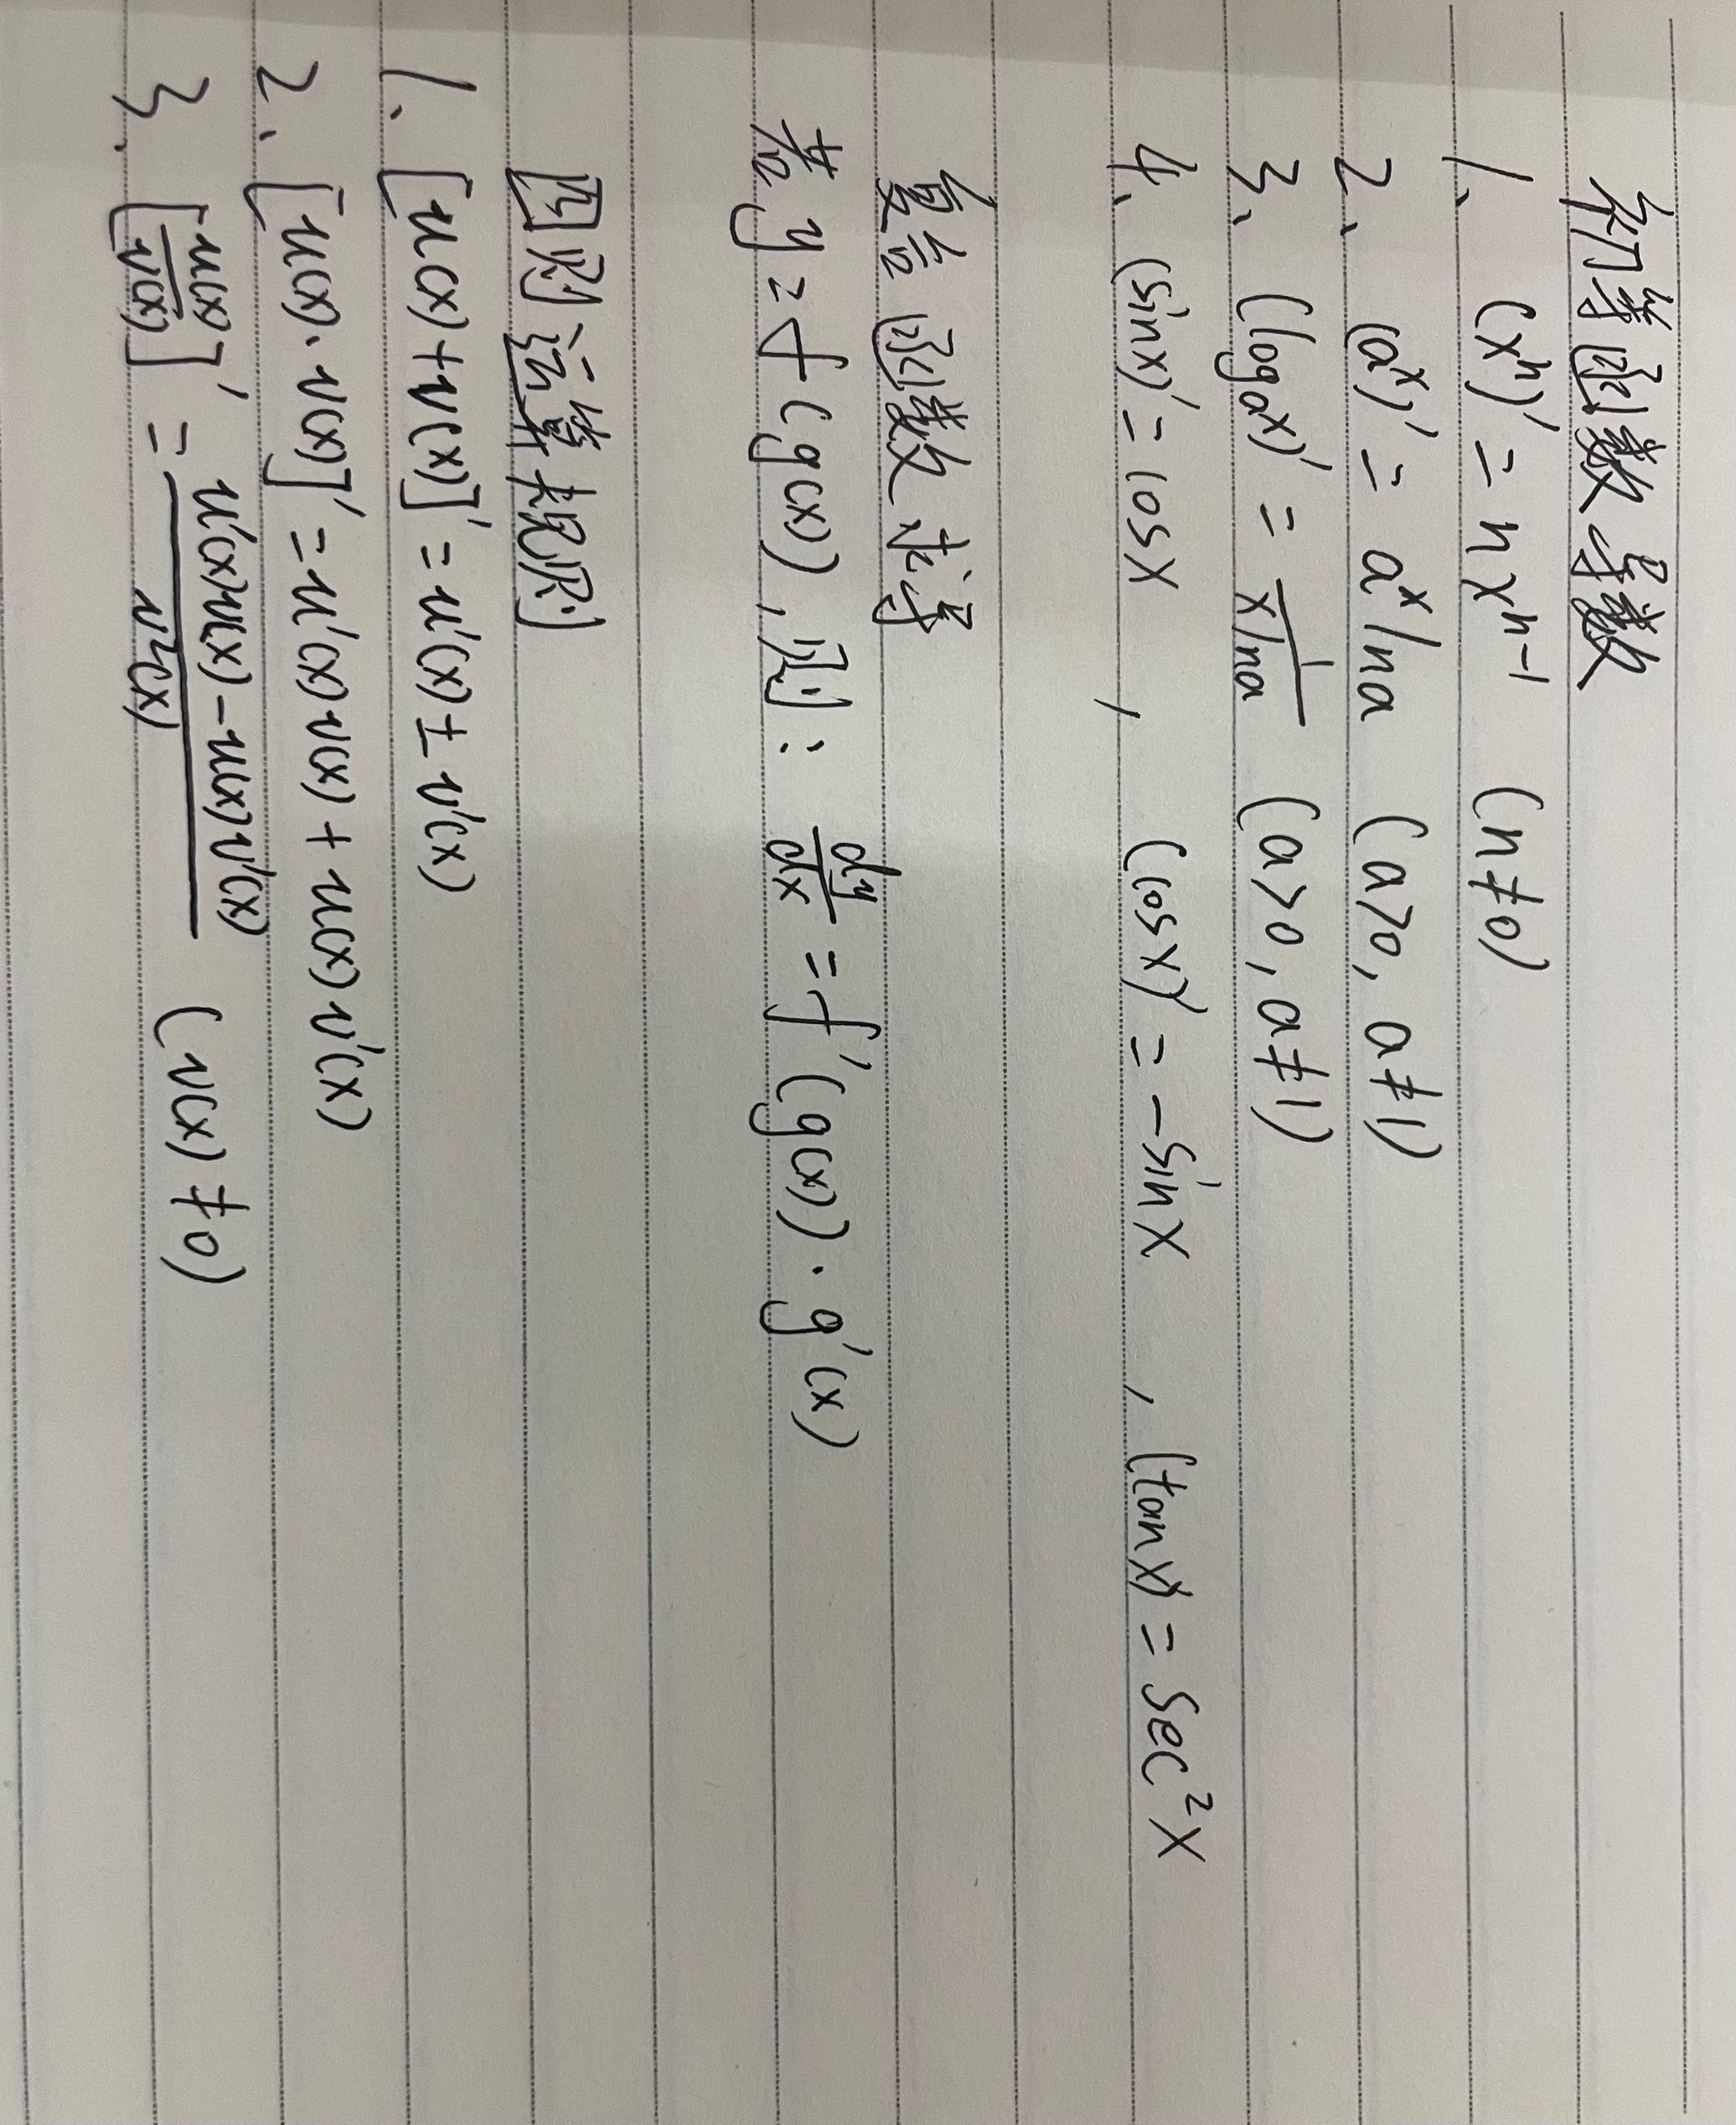 初等函数导数
1、 (xⁿ)' = nxⁿ⁻¹ (n≠0)
2、 (aˣ)' = aˣlna (a>0, a≠1)
3、 (logₐx)' = 1/(xlna) (a>0, a≠1)
4、 (sinx)' = cosx , (cosx)' = -sinx , (tanx)' = sec²x
复合函数求导
若 y=f(g(x)), 则: dy/dx = f'(g(x))·g'(x)
四则运算规则
1、 [u(x)+v(x)]' = u'(x)±v'(x)
2、 [u(x)·v(x)]' = u'(x)v(x)+u(x)v'(x)
3、 [u(x)/v(x)]' = (u'(x)v(x)-u(x)v'(x))/v²(x) (v(x)≠0)